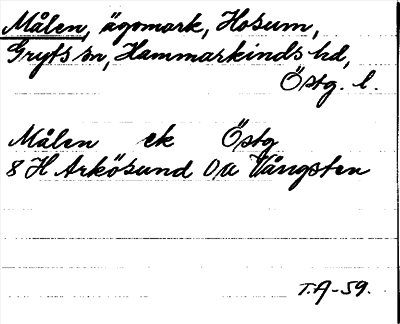 Målen, ägomark, Hosum,
Gryts sn, Hammarkinds hd,
Östg. l.
Målen ek Östg
8 H Arkösund Oa Vångsten
T.A-59.